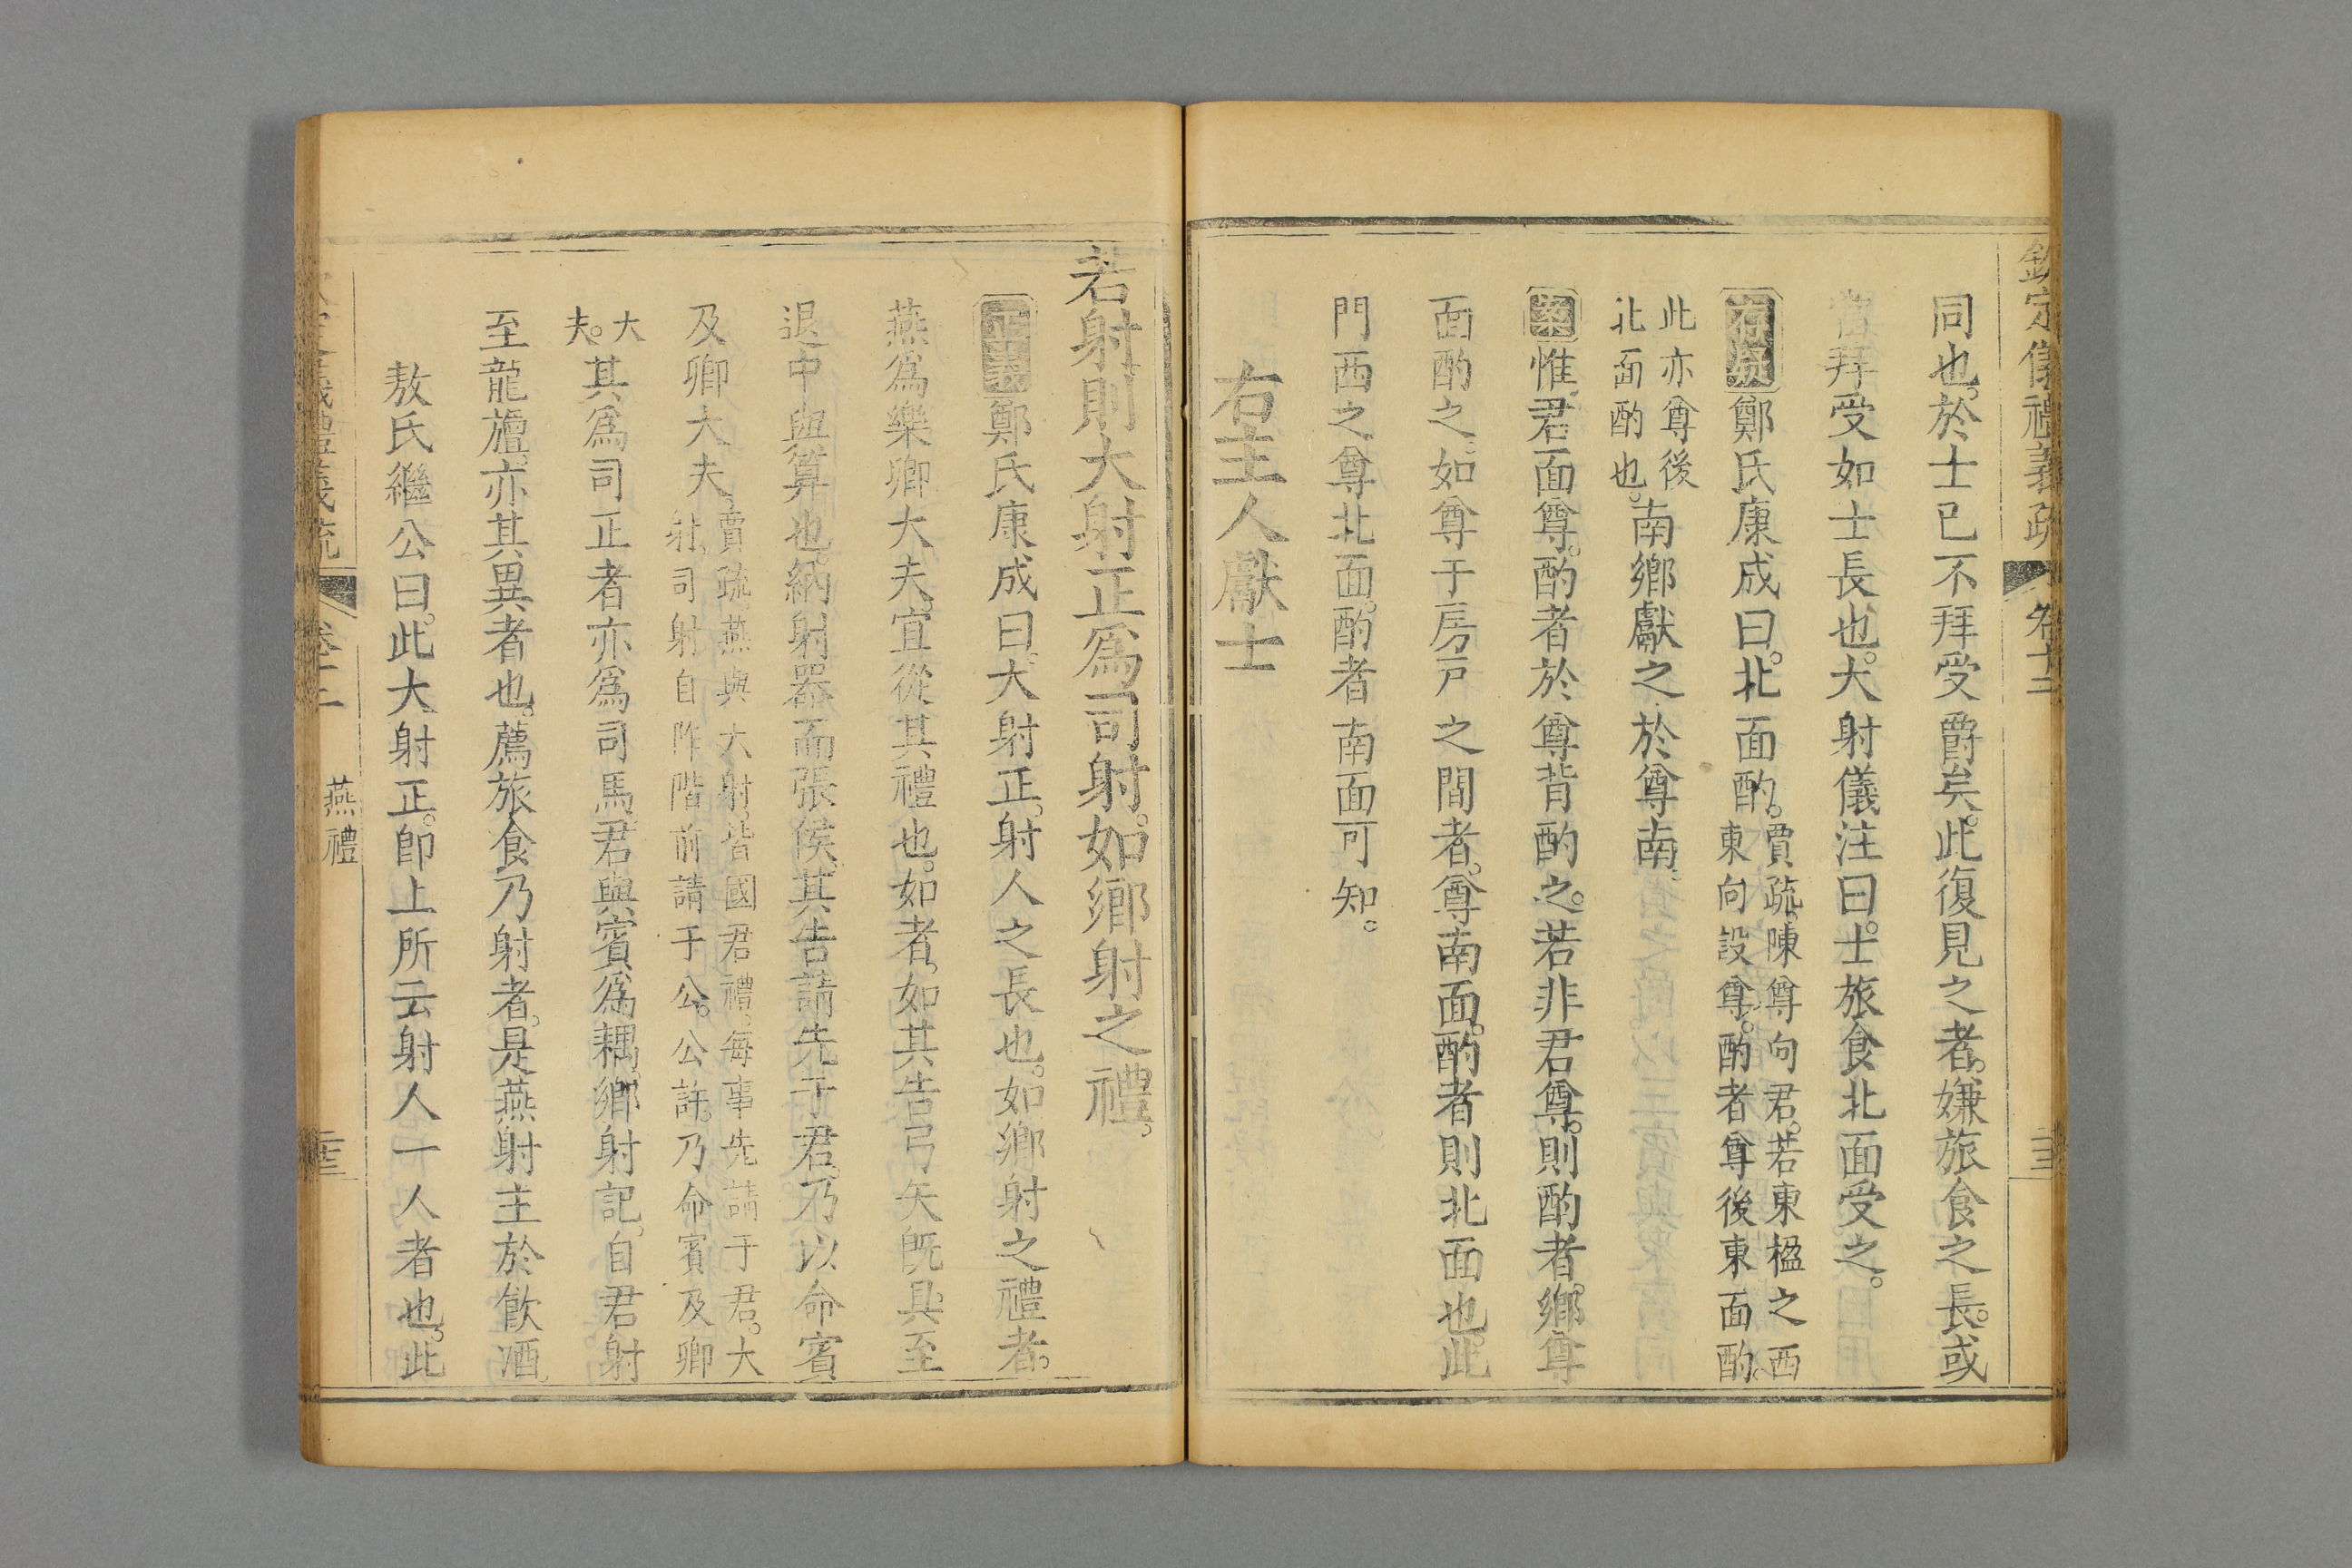 欽定儀禮義疏 卷十二
同也於士已不拜受爵矣此復見之者嫌旅食之長或
當拜受如士長也大射儀注曰士旅食北面受之
存疑 鄭氏康成曰北面酌賈疏陳尊向君若東楹之西東向設尊酌者尊後東面酌
此亦尊後北面酌也南鄉獻之於尊南
案 惟君面尊酌者於尊背酌之若非君尊則酌者鄉尊
面酌之如尊于房戶之間者尊南面酌者則北面也此
門西之尊北面酌者南面可知
右主人獻士
若射則大射正為司射如鄉射之禮
正義 鄭氏康成曰大射正射人之長也如鄉射之禮者
燕為樂卿大夫宜從其禮也如者如其告弓矢既具至
退中與算也納射器而張侯其告請先于君乃以命賓
及卿大夫賈疏燕與大射皆國君禮每事先請于君大射司射自阼階前請于公公許乃命賓及卿
大夫其為司正者亦為司馬君與賓為耦鄉射記自君射
至龍旜亦其異者也薦旅食乃射者是燕射主於飲酒
敖氏繼公曰此大射正即上所云射人一人者也此
儀禮義疏 卷十二 燕禮